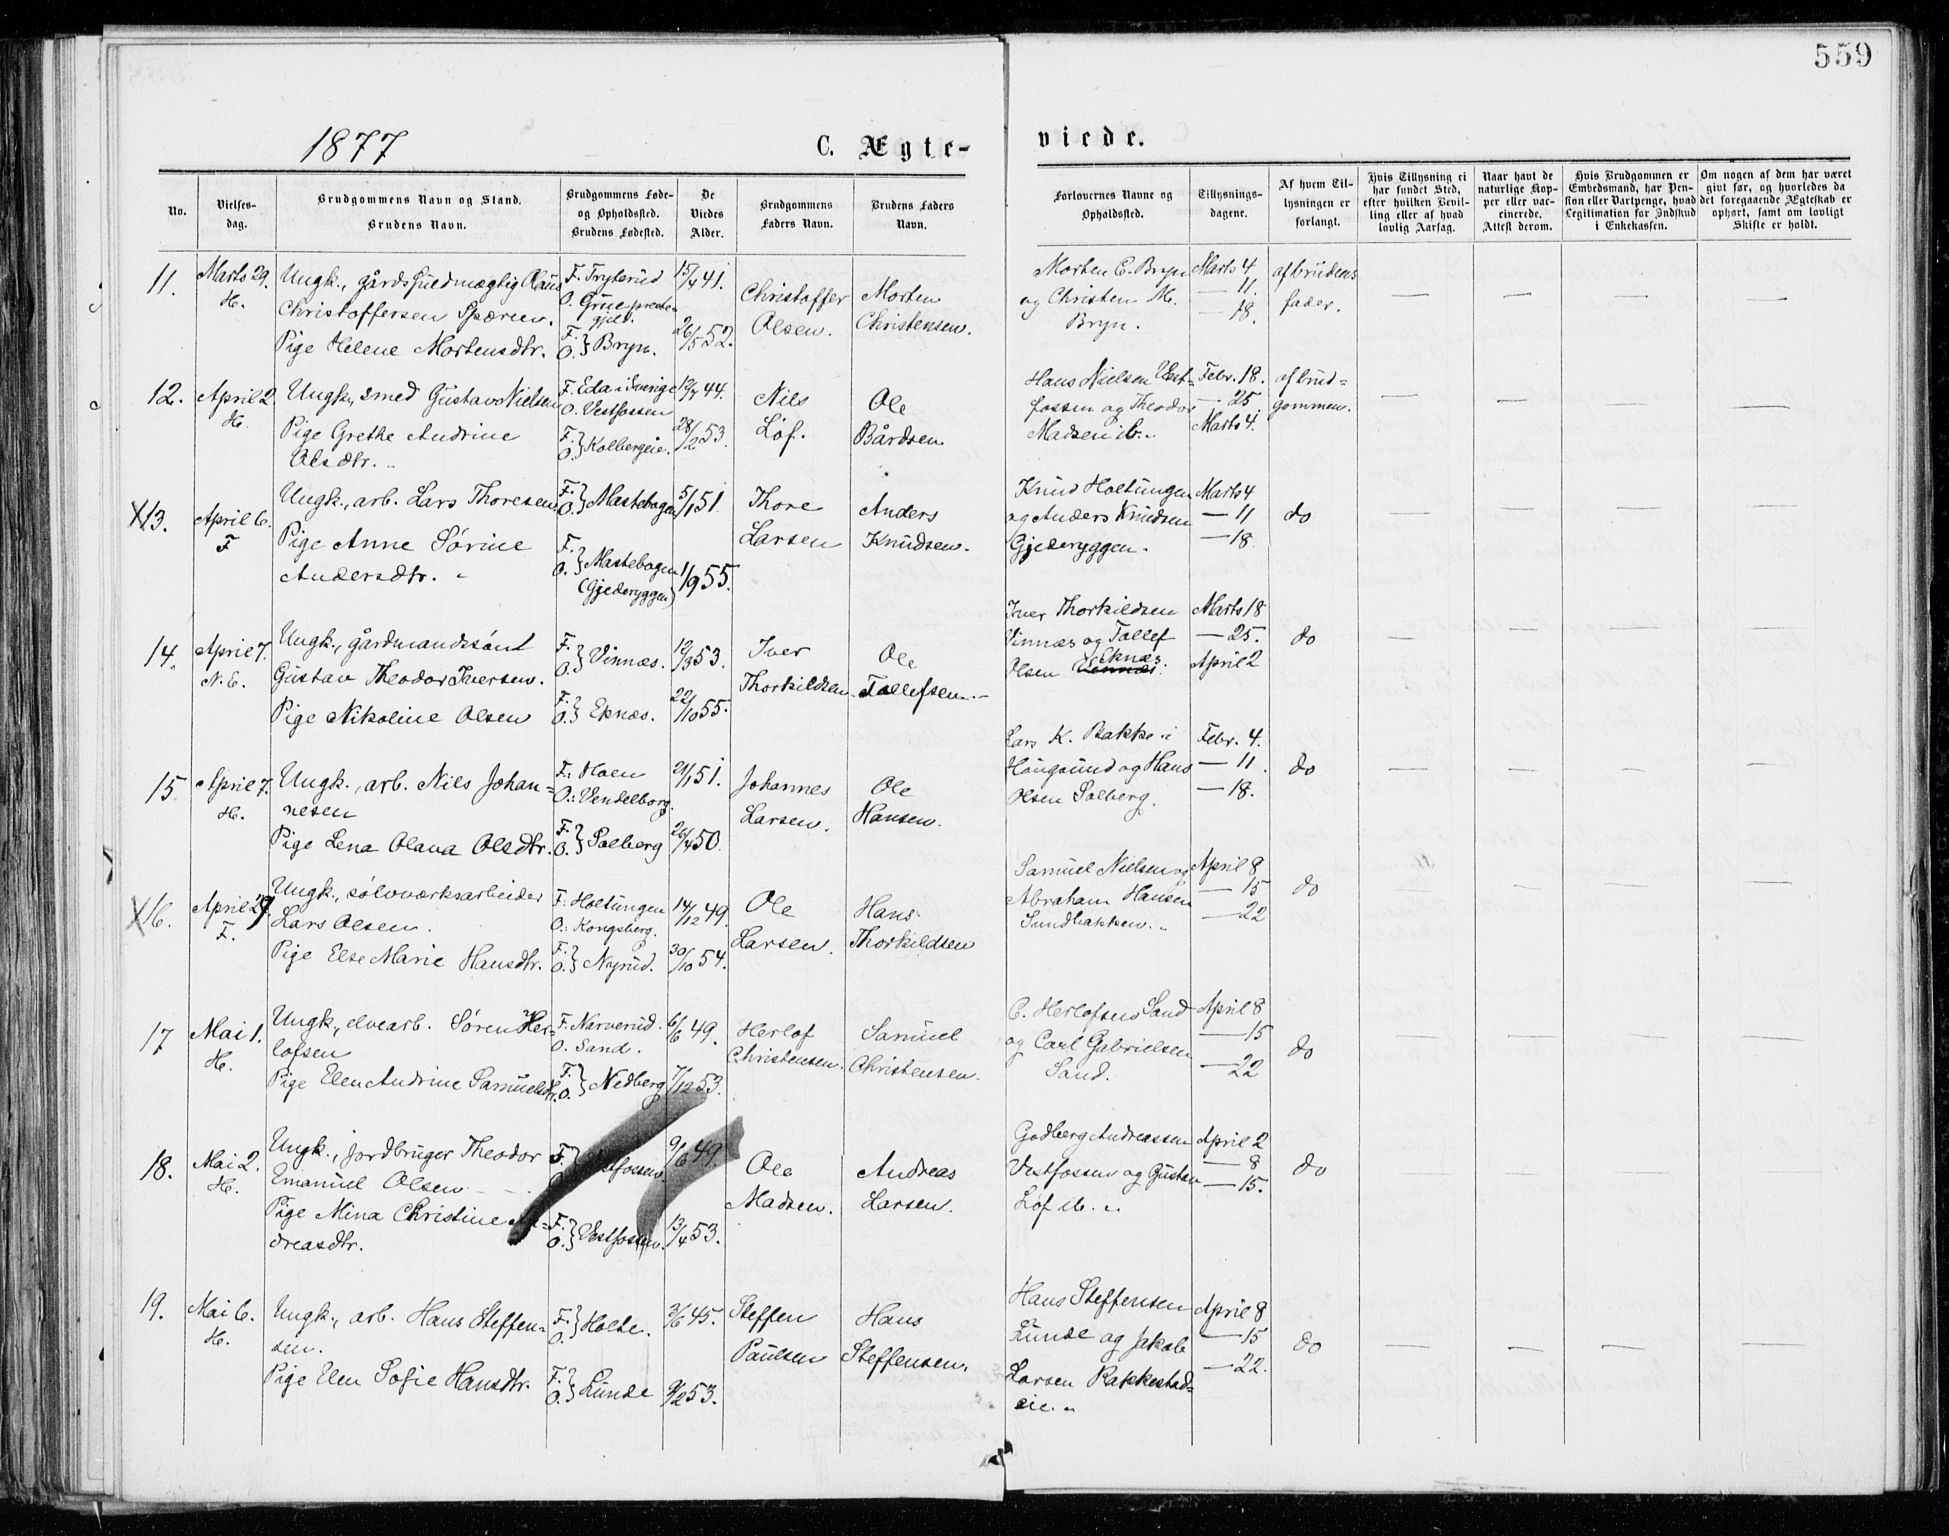 559
1877
C. Ægte-
viede.
No.
Vielses-
dag.
Brudgommens Navn og Stand.
Brudens Navn.
Brudgommens Føde-
og Opholdssted.
Brudens Fødested.
De
Viedes
Alder.
Brudgommens
Faders Navn.
Brudens Faders
Navn.
Forlovernes Navne og
Opholdssted.
Tillysnings-
dagene.
Af hvem Til-
lysningen er
forlangt.
Hvis Tillysning ei
har fundet Sted,
efter hvilken Bevil-
ling eller af hvad
lovlig Aarsag.
Naar havt de
naturlige Kop-
per eller vac-
cinerede.
Attest derom.
Hvis Brudgommen er
Embedsmand, har Pen-
sion eller Vartpenge, hvad
Legitimation for Indskud
i Enkekassen.
Om nogen af dem har været
givt før, og hvorledes da
det foregaaende Ægteskab er
ophørt, samt om lovligt
Skifte er holdt.
11.
Marts 29.
H.
Ungk., gårdsfuldmægtig Olaus
Christoffersen Spæren.
Pige Helene Mortensdtr.
F. Tryterud
O. Grue præste-
gjeld.
F.
O. } Bryn.
15/4 41.
26/5 52.
Christoffer
Olsen.
Morten
Christensen.
Morten C. Bryn
og Christen M.
Bryn.
Marts 4
— 11.
— 18.
af brudens
fader.
12.
April 2
H.
Ungk., smed Gustav Nielsen
Pige Grethe Andrine
Olsdtr.
F. Eda i Sverige
O. Vestfossen
F.
O. } Kolbergeie.
12/7 44.
28/2 53.
Nils
Løf.
Ole
Bårdsen
Hans Nielsen Vest-
fossen og Theodor
Madsen ib.
Febr. 18.
— 25
Marts 4.
af brud-
gommen.
X13.
April 6.
F
Ungk., arb. Lars Thoresen
Pige Anne Sørine
Andersdtr.
F.
O. } Mastebogen
F.
O. } Mastebogen
(Gjederyggen)
5/1 51.
1/9 55.
Thore
Larsen
Anders
Knudsen.
Knud Holtungen
og Anders Knudsen
Gjederyggen.
Marts 4
— 11
— 18.
do
14.
April 7.
N. E.
Ungk., gårdmandssønt
Gustav Theodor Iversen.
Pige Nikoline Olsen
F.
O. } Vinnæs.
F.
O. } Eknæs.
12/3 53.
22/10 55.
Iver
Thorkildsen
Ole
Tollefsen.
Iver Thorkildsen
Vinnæs og Tollef
Eknæs.
Olsen Vennæs.
Marts 18
— 25.
April 2
do
15
April 7.
H.
Ungk., arb. Nils Johan-
nesen
Pige Lena Olava Olsdtr.
F.: Hoen
O.: Vendelborg.
F.
O. } Solberg
21/1 51.
26/4 50.
Johannes
Larsen.
Ole
Hansen.
Lars K. Bakke i
Haugsund og Hans
Olsen Solberg.
Febr. 4.
— 11.
— 18.
do
X16.
April 29
F.
Ungk., sølvværksarbeider
Lars Olsen.
Pige Else Marie Hansdtr.
F: Holtungen
O: Kongsberg.
F.
O. } Nyrud.
14/12 49.
30/10 54.
Ole
Larsen.
Hans
Thorkildsen
Samuel Nielsen og
Abraham Hansen
Sundbakken.
April 8
— 15
— 22
do
17
Mai 1.
H.
Ungk., elvearb. Søren Her-
lofsen
Pige Elen Andrine Samuelsdtr.
F. Narverud.
O. Sand.
F.
O. } Nedberg
6/6 49.
7/12 53.
Herlof
Christensen.
Samuel
Christensen.
C. Herlofsen Sand
og Carl Gabrielsen
Sand.
April 8
— 15
— 22
do
18.
Mai 2.
H.
Ungk., jordbruger Theodor
Emanuel Olsen
Pige Mina Christine An-
dreasdtr.
F.
O. } Vestfossen
F.
O. } Vestfossen.
9/6 49.
13/4 53.
Ole
Madsen.
Andreas
Larsen.
Godberg Andreassen
Vestfossen og Gustav
Løf ib.
April 2
— 8
— 15.
do
19.
Mai 6.
H.
Ungk., arb. Hans Steffen-
sen.
Pige Elen Sofie Hansdtr.
F.
O. } Holte.
F.
O. } Lunde
3/6 45.
9/2 53.
Steffen
Paulsen
Hans
Steffensen.
Hans Steffensen
Lunde og Jakob
Larsen Rakkestad-
eie.
April 8
— 15
— 22.
do